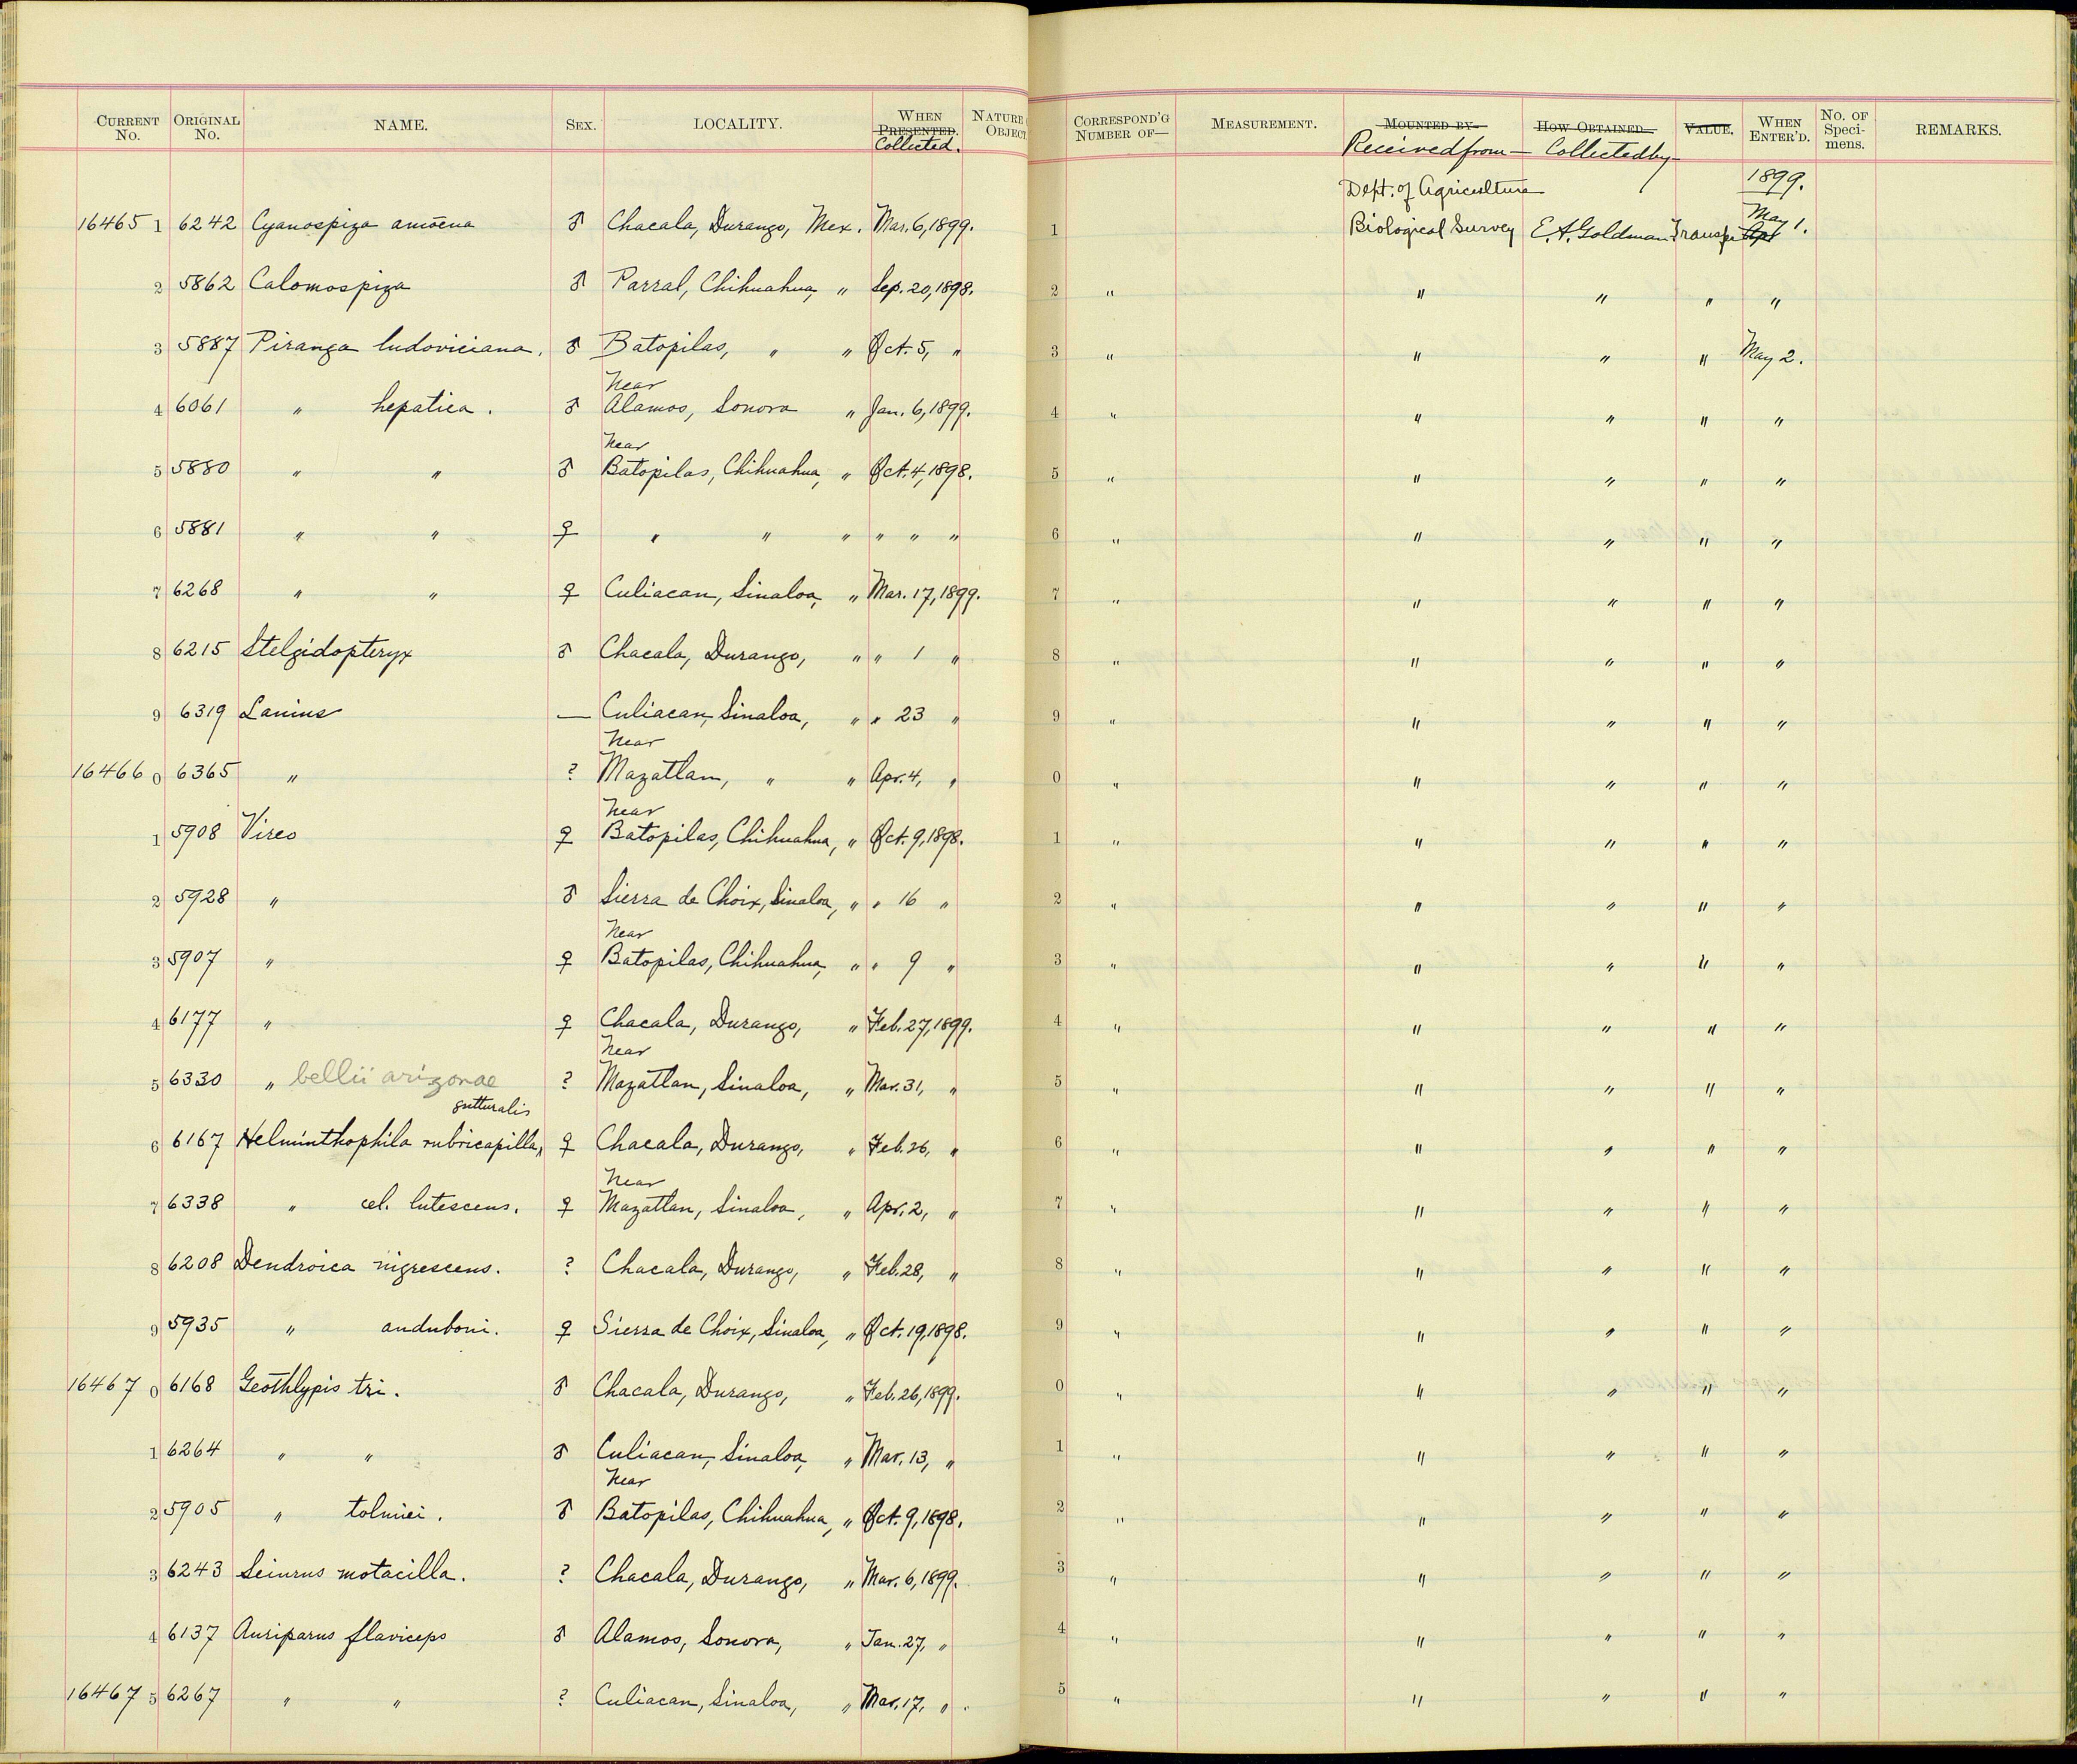 CURRENT No. ORIGINAL No. NAME. SEX. LOCALITY. WHEN PRESENTED. Collected. NATURE OBJECT
16465 1 6242 Cyanospiza amoena ♂ Chacala, Durango, Mex. Mar. 6, 1899.
2 5862 Calomospiza ♂ Parral, Chihuahua, " Sep. 20, 1898.
3 5887 Piranga ludoviciana. ♂ Batopilas, " " Oct. 5, "
4 6061 " hepatica. ♂ Near Alamos, Sonora " Jan. 6, 1899.
5 5880 " " ♂ Near Batopilas, Chihuahua, " Oct. 4, 1898.
6 5881 " " ♀ " " " " " "
7 6268 " " ♀ Culiacan, Sinaloa, " Mar. 17, 1899.
8 6215 Stelgidopteryx ♂ Chacala, Durango, " " 1 "
9 6319 Lanius — Culiacan, Sinaloa, " " 23 "
16466 0 6365 " ? Near Mazatlan, " " Apr. 4, "
1 5908 Vireo ♀ Near Batopilas, Chihuahua, " Oct. 9, 1898.
2 5928 " ♂ Sierra de Choix, Sinaloa, " " 16 "
3 5907 " ♀ Near Batopilas, Chihuahua, " " 9 "
4 6177 " ♀ Chacala, Durango, " Feb. 27, 1899.
5 6330 " bellii arizonae ? Near Mazatlan, Sinaloa, " Mar. 31, "
6 6167 Helminthophila rubricapilla, gutturalis ♀ Chacala, Durango, " Feb. 26, "
7 6338 " cel. lutescens. ♀ Near Mazatlan, Sinaloa, " Apr. 2, "
8 6208 Dendroica nigrescens. ? Chacala, Durango, " Feb. 28, "
9 5935 " auduboni. ♀ Sierra de Choix, Sinaloa, " Oct. 19, 1898.
16467 0 6168 Geothlypis tri. ♂ Chacala, Durango, " Feb. 26, 1899.
1 6264 " " ♂ Culiacan, Sinaloa, " Mar. 13, "
2 5905 " tolmiei. ♂ Near Batopilas, Chihuahua, " Oct. 9, 1898.
3 6243 Seiurus motacilla. ? Chacala, Durango, " Mar. 6, 1899.
4 6137 Auriparus flaviceps ♂ Alamos, Sonora, " Jan. 27, "
16467 5 6267 " " ? Culiacan, Sinaloa, " Mar. 17, " .
CORRESPOND'G NUMBER OF— MEASUREMENT. MOUNTED BY— Received from — HOW OBTAINED— Collected by — VALUE. WHEN ENTER'D. No. OF Speci-mens. REMARKS.
Dept. of Agriculture 1899.
1 Biological Survey E. A. Goldman Transfr Apr May 1.
2 " " " " "
3 " " " " May 2.
4 " " " " "
5 " " " " "
6 " " " " "
7 " " " " "
8 " " " " "
9 " " " " "
0 " " " " "
1 " " " " "
2 " " " " "
3 " " " " "
4 " " " " "
5 " " " " "
6 " " " " "
7 " " " " "
8 " " " " "
9 " " " " "
0 " " " " "
1 " " " " "
2 " " " " "
3 " " " " "
4 " " " " "
5 " " " " "